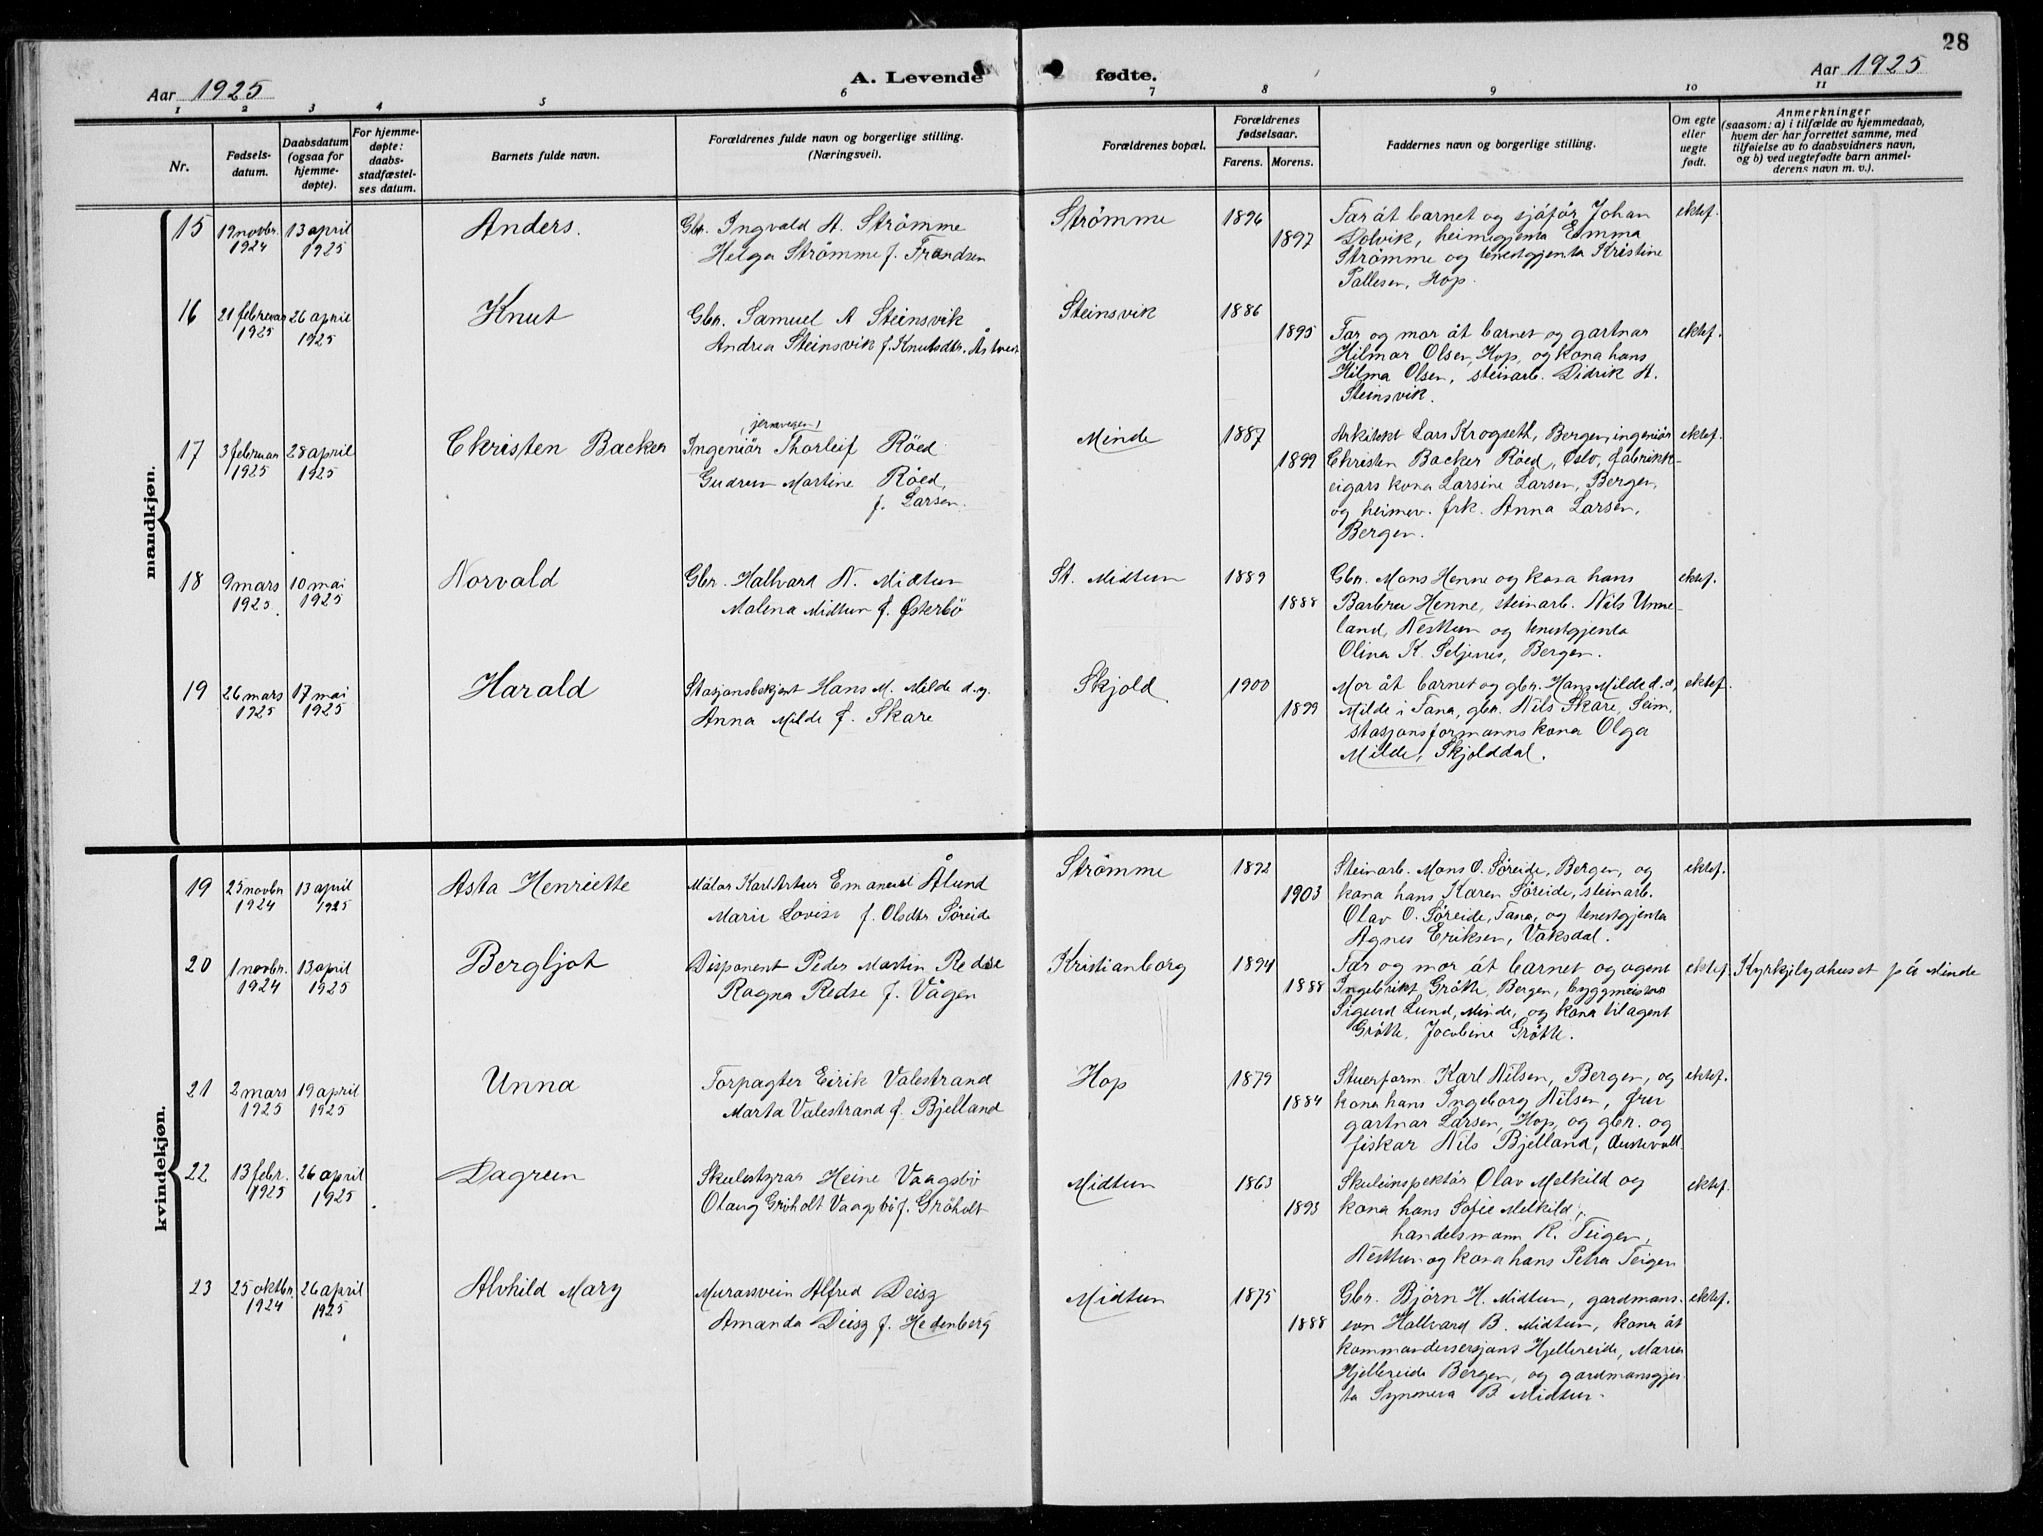 28
Aar 1925
A. Levende fødte.
Aar 1925
1 2 3 4 5 6 7 8 9 10 11
Nr.
Fødsels-
datum.
Daabsdatum
(ogsaa for
hjemme-
døpte).
For hjemme-
døpte:
daabs-
stadfæstel-
ses datum.
Barnets fulde navn.
Forældrenes fulde navn og borgerlige stilling.
(Næringsvei).
Forældrenes bopæl.
Forældrenes
fødselsaar.
Farens. Morens.
Faddernes navn og borgerlige stilling.
Om egte
eller
uegte
født.
Anmerkninger
(saasom: a) i tilfælde av hjemmedaab,
hvem der har forrettet samme, med
tilføielse av to daabsvidners navn,
og b) ved uegtefødte barn anmel-
derens navn m. v.).
mandkjøn.
15
19 novbr.
1924
13 april
1925
Anders.
Gbr. Ingvald A. Strømme
Helga Strømme f. Frandsen
Strømme
1896
1897
Far åt barnet og sjåfør Johan
Dolvik, heimegjenta Emma
Strømme og tenestgjenta Kristine
Pallesen, Hop.
ektef.
16
21 februar
1925
26 april
1925
Knut
Gbr. Samuel A Steinsvik
Andrea Steinsvik f. Knutsdtr. Åstveit
Steinsvik
1886
1895
Far og mor åt barnet og gartnar
Hilmar Olsen, Hop, og kona hans
Hilma Olsen, steinarb. Didrik A.
Steinsvik.
ektef.
17
3 februar
1925
28 april
1925
Christen Backer
(jernvegen)
Ingeniør Thorleif Röed
Gudrun Martine Röed,
f. Larsen.
Minde
1887
1899
Arkitekt Lars Krogseth, Bergen, ingeniør
Christen Backer Röed, Oslo, fabrikk-
eigars kona Larsine Larsen, Bergen,
og heimev. frk. Anna Larsen,
Bergen.
ektef.
18
9 mars
1925.
10 mai
1925
Norvald
Gbr. Hallvard N. Midtun
Malena Midtun f. Østerbö
St. Midtun
1889
1888
Gbr. Mons Henne og kona hans
Barbra Henne, steinarb. Nils Unne-
land, Nesttun og tenestgjenta
Olina K. Seljenes, Bergen.
ektef.
19
26 mars
1925
17 mai
1925
Harald
Stasjonsbetjent Hans M. Milde d.y.
Anna Milde f. Skare
Skjold
1900
1899
Mor åt barnet og gbr. Hans Milde d.e,
Milde i Fana, gbr. Nils Skare, Seim,
stasjonsformanns kona Olga
Milde, Skjolddal.
ektef.
kvindekjøn.
19
25 novbr
1924
13 april
1925
Asta Henriette
Målar Karl Artur Emanuel Ålund
Marie Lovise f. Olsdtr Söreide
Strømme
1892
1903
Steinarb. Mons O. Söreide, Bergen, og
kona hans Karen Söreide, steinarb.
Olav O. Söreide, Fana, og tenestgjenta
Agnes Eriksen, Vaksdal.
ektef.
20
1 novbr.
1924
13 april
1925
Bergljot
Disponent Peder Martin Redse
Ragna Redse f. Vågen
Kristianborg
1894
1888
Far og mor åt barnet og agent
Ingebrikt Grötte, Bergen, byggmeister
Sigurd Lund, Minde, og kona til agent
Grötte, Jacobine Grötte.
ektef.
Kyrkjelydhuset på Minde
21
2 mars
1925
19 april
1925
Unna
Forpagter Eirik Valestrand
Marta Valestrand f. Bjelland
Hop
1879
1884
Stuerform. Karl Nilsen, Bergen, og
kona hans Ingeborg Nilsen, fru
gartnar Larsen, Hop, og gbr. og
fiskar Nils Bjelland, Austevoll
ektef.
22
13 febr.
1925
26 april
1925
Dagrun
Skulestyrar Heine Vaagsbö
Olaug Gröholt Vaagsbö f. Gröholt
Midtun
1863
1893
Skuleinspektör Olav Melkild og
kona hans Sofie Melkild,
handelsmann R. Teigen,
Nesttun og kona hans Petra Teigen
ektef.
23
25 oktbr.
1924
26 april
1925
Alvhild Mary
Murarsvein Alfred Deisz
Amanda Deisz f. Hedenberg
Midtun
1875
1888
Gbr. Björn H. Midtun, gardmans-
son Hallvard B. Midtun, kona åt
kommandersersjant Hjelleseide, Marie
Hjelleseide Bergen, og gardmansgjen-
ta Synneva B Midtun.
ektef.